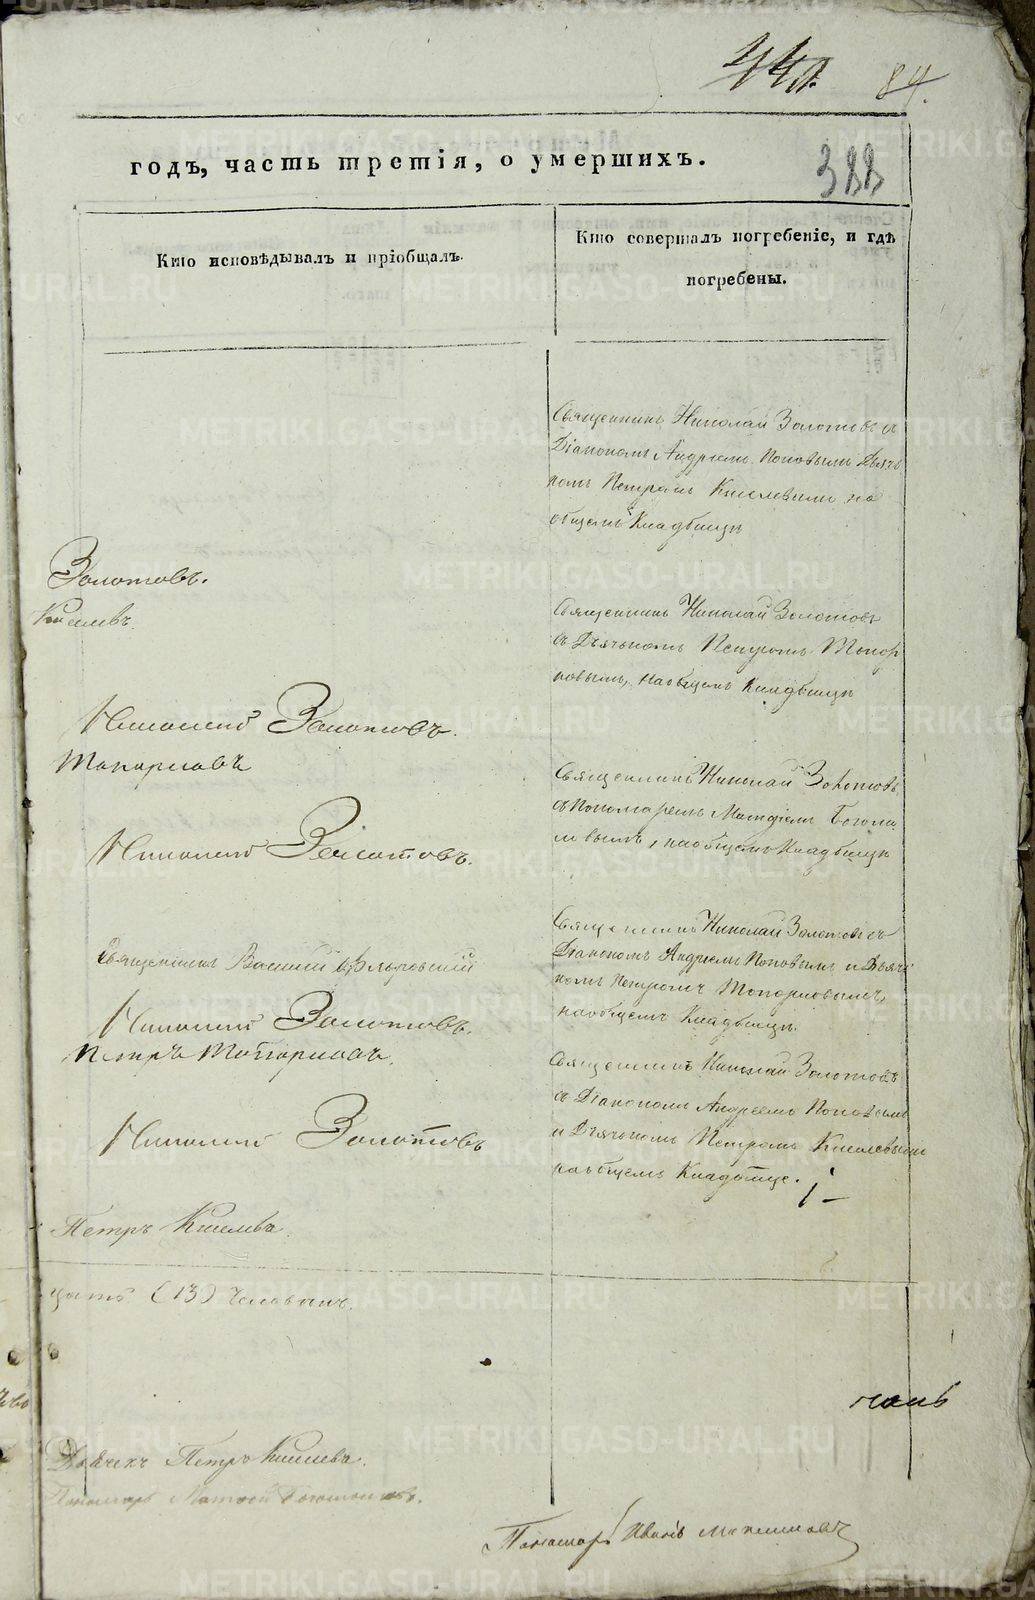 84.
388
годъ, часть третія, о умершихъ.
Кто исповѣдывалъ и пріобщалъ.
Кто совершалъ погребеніе, и гдѣ
погребены.
Священникъ Николай Золотовъ съ
Діакономъ Андреемъ Поповымъ Дьяч
комъ Петромъ Киселевымъ на
общемъ Кладбищѣ
Золотовъ.
Киселевъ
Священникъ Николай Золотовъ
съ Дьячькомъ Петромъ Топор
ковымъ, на общемъ Кладбищѣ
Николай Золотовъ.
Топорковъ
Священникъ Николай Золотовъ
съ Пономаремъ Матфіемъ Богомо
ловымъ, на общемъ Кладбищѣ
Николай Золотовъ.
Священникъ Николай Золотовъ съ
Діакономъ Андреемъ Поповымъ и Дьяч
комъ Петромъ Топорковымъ,
на общемъ Кладбищѣ.
Священникъ Василій
Николай Золотовъ.
Петръ Топорковъ.
Священникъ Николай Золотовъ
съ Діакономъ Андреемъ Поповымъ
и Дьячькомъ Петромъ Киселевымъ
на общемъ Кладбище.
Николай Золотовъ
Петръ Киселевъ.
цать (13) Человѣкъ.
Дьячекъ Петръ Киселевъ.
Пономарь Матвей Богомоловъ.
Пономарь Иванъ
METRIKI.GASO-URAL.RU